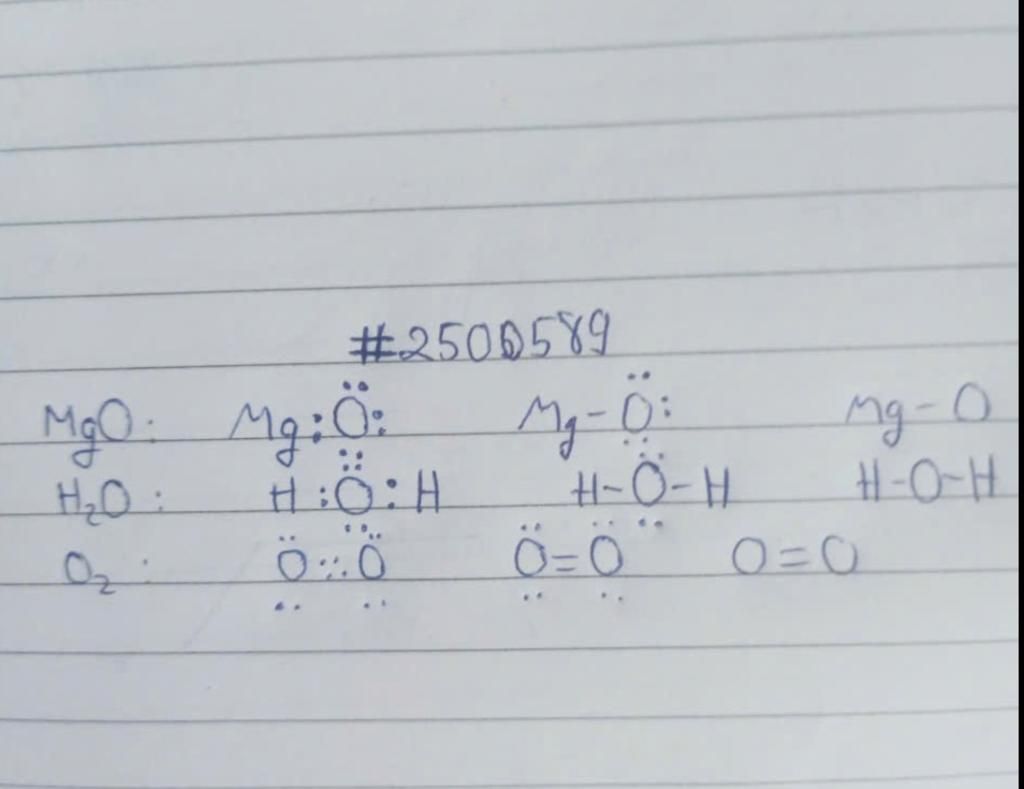 #2500589
MgO: Mg:Ö: Mg-Ö: Mg-O
H₂O: H:Ö:H H-Ö-H H-O-H
O₂: Ö::Ö Ö=Ö O=O